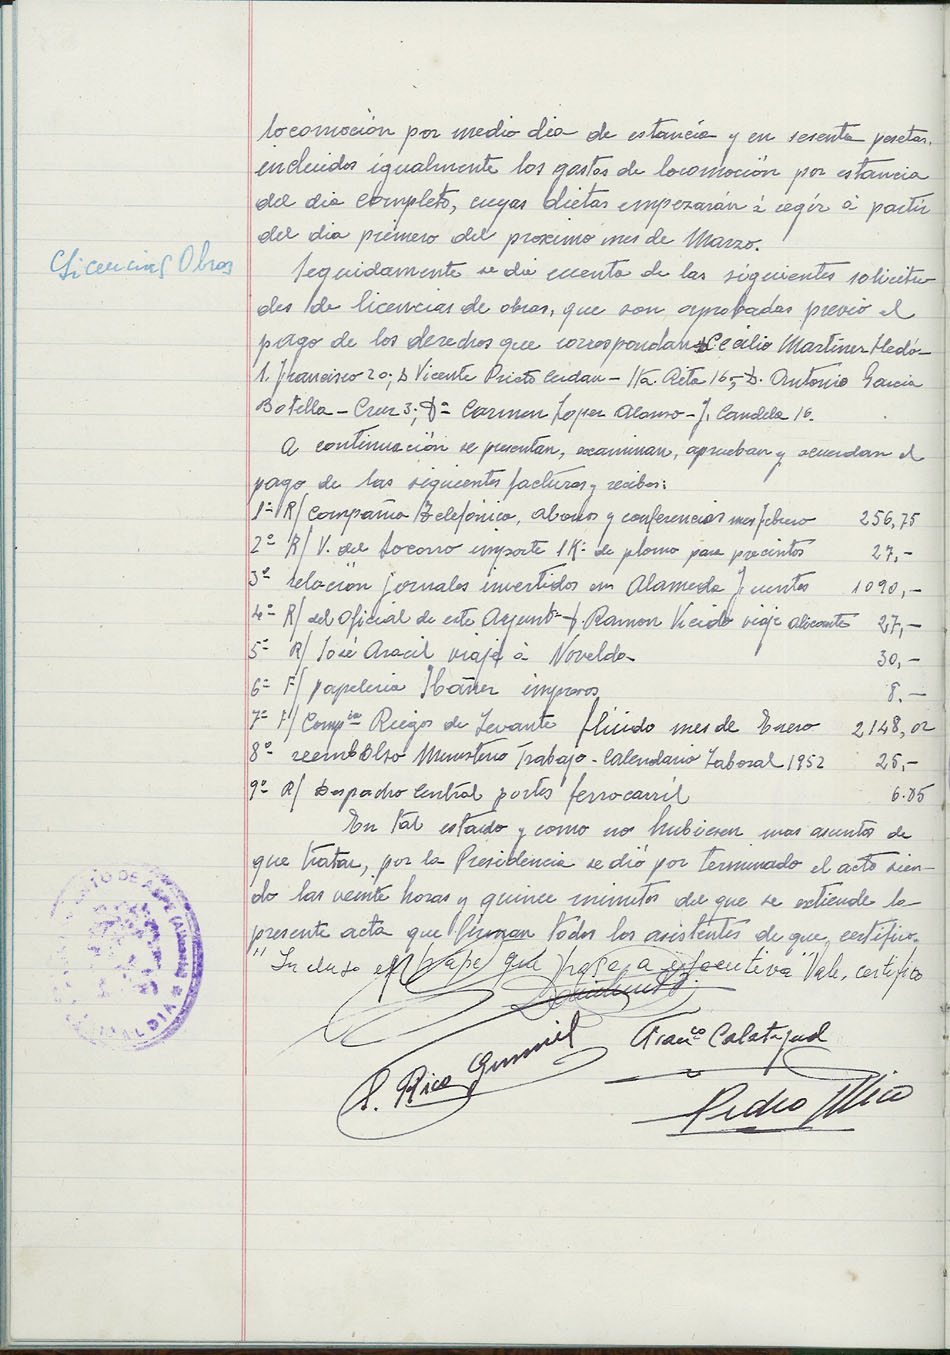 locomoción por medio dia de estancia y en sesenta pesetas,
incluidos igualmente los gastos de locomoción por estancia
del dia completo, cuyas dietas empezarán á regir á partir
del dia primero del proximo mes de Marzo.
Licencias Obras
Seguidamente se dió cuenta de las siguientes solicitu
des de licencias de obras, que son aprobadas previo el
pago de los derechos que correspondan D. Cecilio Martinez
S. Francisco 20; D Vicente Prieto Cerdan - 16; D. Antonio Garcia
Botella - Cruz 3; Dª Carmen Lopez Alonso - J. Candela 16.
A continuación se presentan, examinan, aprueban y acuerdan el
pago de las siguientes facturas y recibos:
1ª R/ Compañia Telefónica, abonos y conferencias mes febrero 256,75
2ª R/ V. del Socorro importe 1 Kº de plomo para precintos 27,-
3ª relación jornales invertidos en Alameda Fuentes 1090,-
4ª R/ del Oficial de este Ayuntº D. Ramon Vicedo viaje Alicante 27,-
5ª R/ José Aracil viaje á Novelda 30,-
6ª F/ papeleria Ibáñez impresos 8.-
7ª F/ Compia Riegos de Levante fluido mes de Enero 2148,02
8ª reembolso Ministerio Trabajo - Calendario Laboral 1952 25,-
9ª R/ Despacho Central portes ferrocarril 6.05
En tal estado y como no hubiesen mas asuntos de
que tratar, por la Presidencia se dió por terminado el acto sien-
do las veinte horas y quince minutos de que se extiende la
presente acta que firman todos los asistentes de que, certifico.
" Incluso el que pase a ejecutiva" Vale, certifico
AYUNTAMIENTO DE ASPE (Alicante) ALCALDIA
P. Rico Gumiel
Franco Calatayud
Pedro Mico